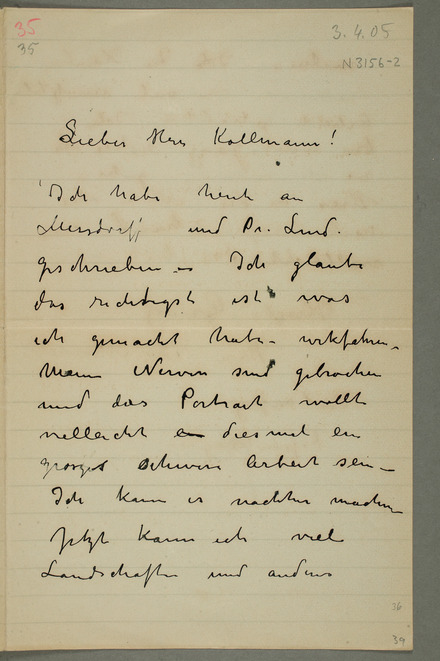 35
35
3.4.05
N 3156-2
Lieber Herr Kollmann!
Ich habe heute an
und Dr. Lind.
geschrieben – Ich glaube
das richtigst ist was
ich gemacht habe –
Meine Nerven sind gebrochen
und das Portrait wollte
vielleicht diesmal ein
groses schwere Arbeit sein –
Ich kann es nachher machen
Jetzt kann ich viele
Landschafte und anders
36
39